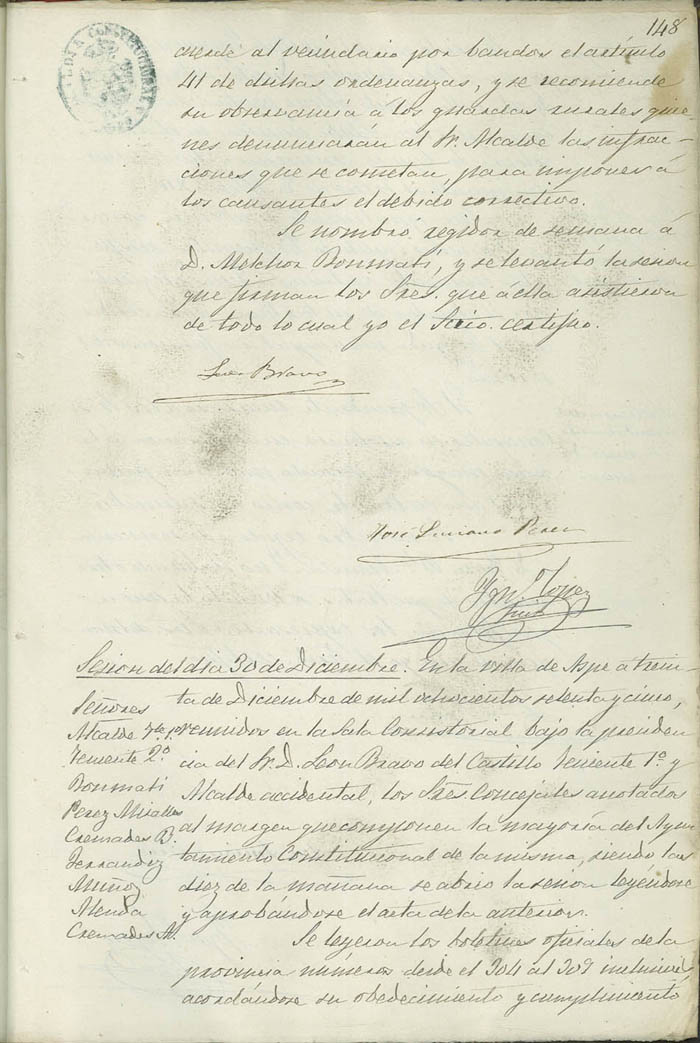 148
cuerde al vecindario por bandos el artículo
41 de dichas ordenanzas, y se recomiende
su observancia á los guardas rurales quie-
nes denunciarán al Sr. Alcalde las infrac-
ciones que se cometan, para imponer á
los causantes el debido correctivo.
Se nombró regidor de semana á
D. Melchor Bonmatí, y se levantó la sesion
que firman los Sres. que á ella asistieron
de todo lo cual yo el Srio. certifico.
Leon Bravo
José Luciano Perez
Ign.º Lopez
Sesion del dia 30 de Diciembre. En la villa de Aspe a trein-
ta de Diciembre de mil ochocientos setenta y cinco,
reunidos en la Sala Consistorial bajo la presiden
cia del Sr. D. Leon Bravo del Castillo Teniente 1.º y
Alcalde accidental, los Sres. Concejales anotados
al margen que componen la mayoría del Ayun
tamiento Constitucional de la misma, siendo las
diez de la mañana se abrió la sesion leyendose
y aprobándose el acta de la anterior.
Señores
Alcalde Tte. 1.º
Teniente 2.º
Bonmatí
Perez Miralles
Cremades B.
Ferrandiz
Muñoz
Alenda
Cremades A.
Se leyeron los boletines oficiales de la
provincia números desde el 304 al 309 inclusive,
acordándose su obedecimiento y cumplimiento